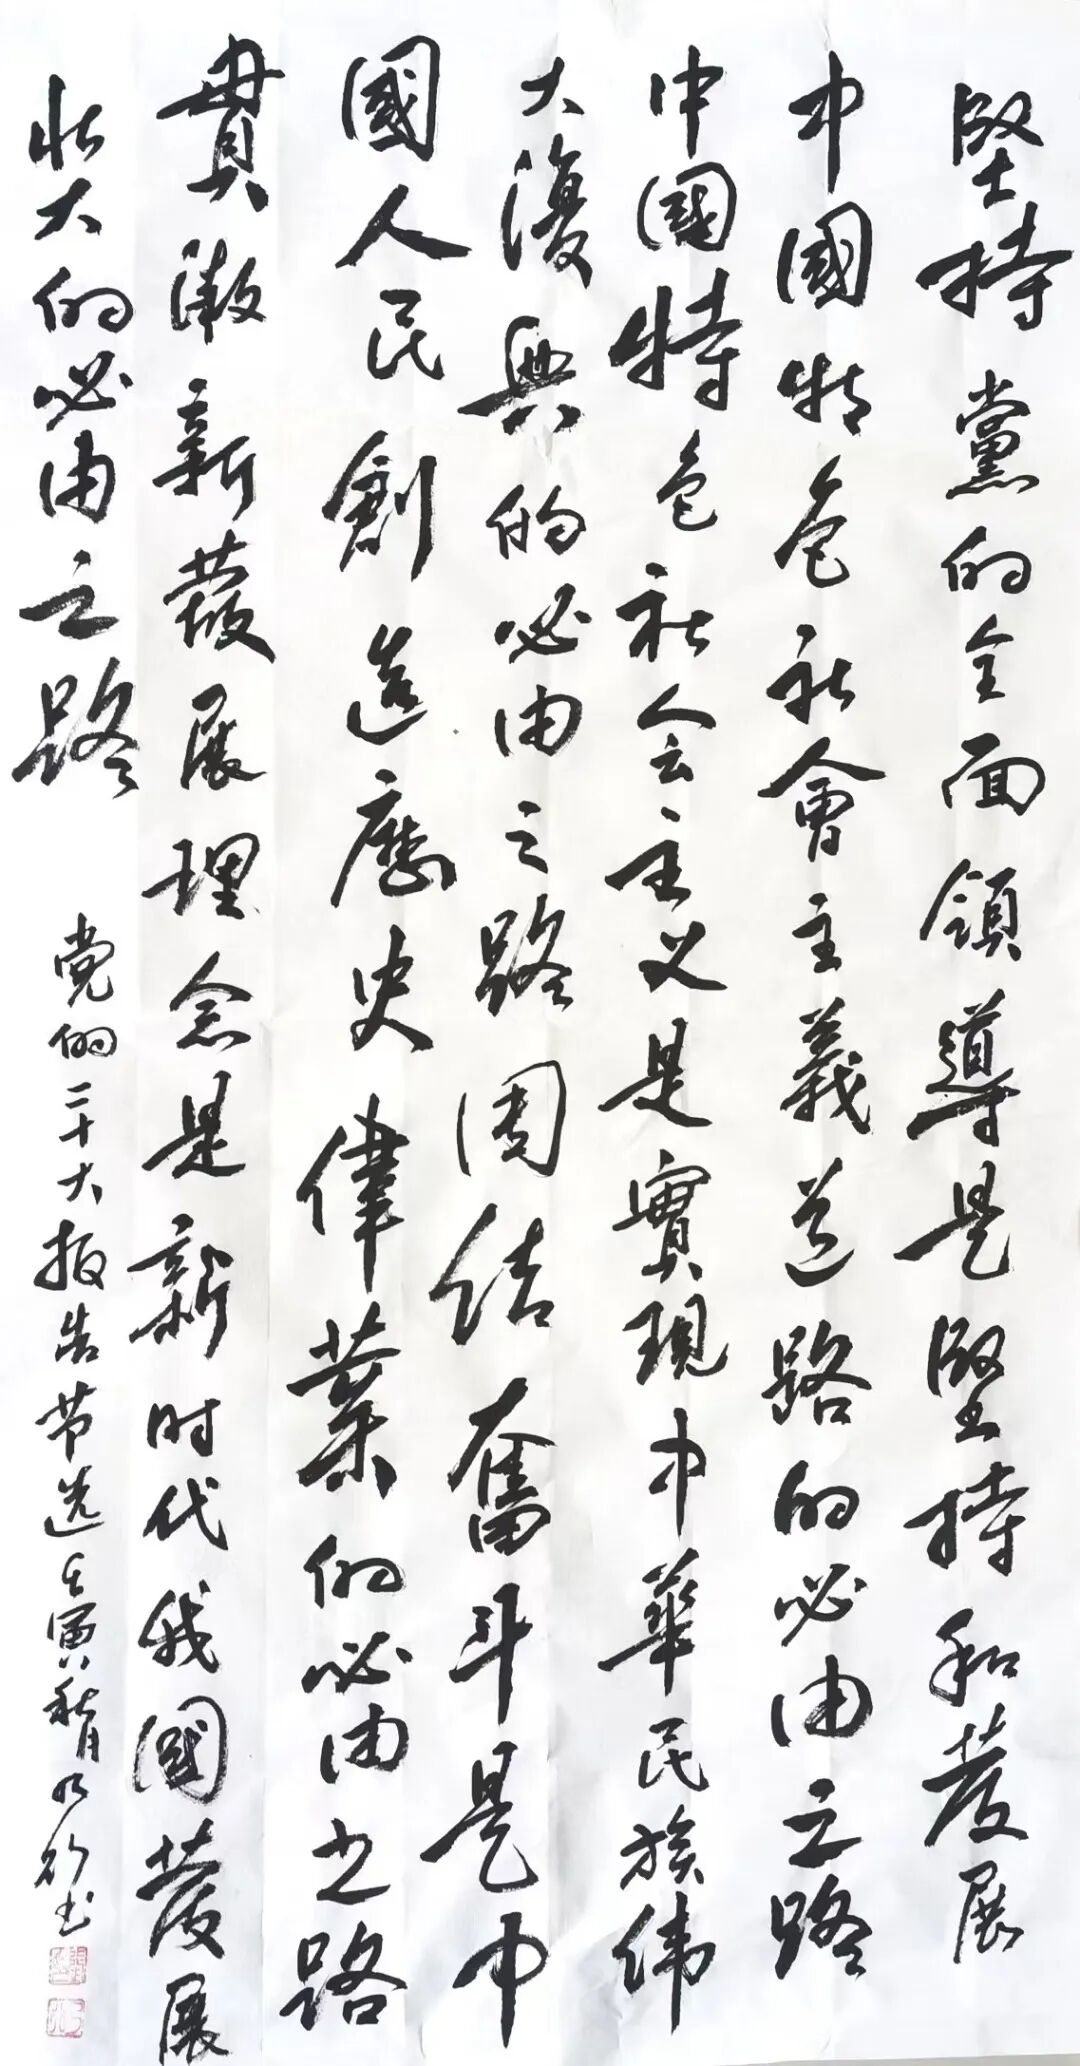 堅持黨的全面領導是堅持和發展
中國特色社會主義道路的必由之路
中國特色社会主义是實現中華民族伟
大復興的必由之路团结奮斗是中
國人民創造歷史偉業的必由之路
貫澈新發展理念是新时代我國發展
壮大的必由之路
党的二十大报告节选壬寅秋月 书